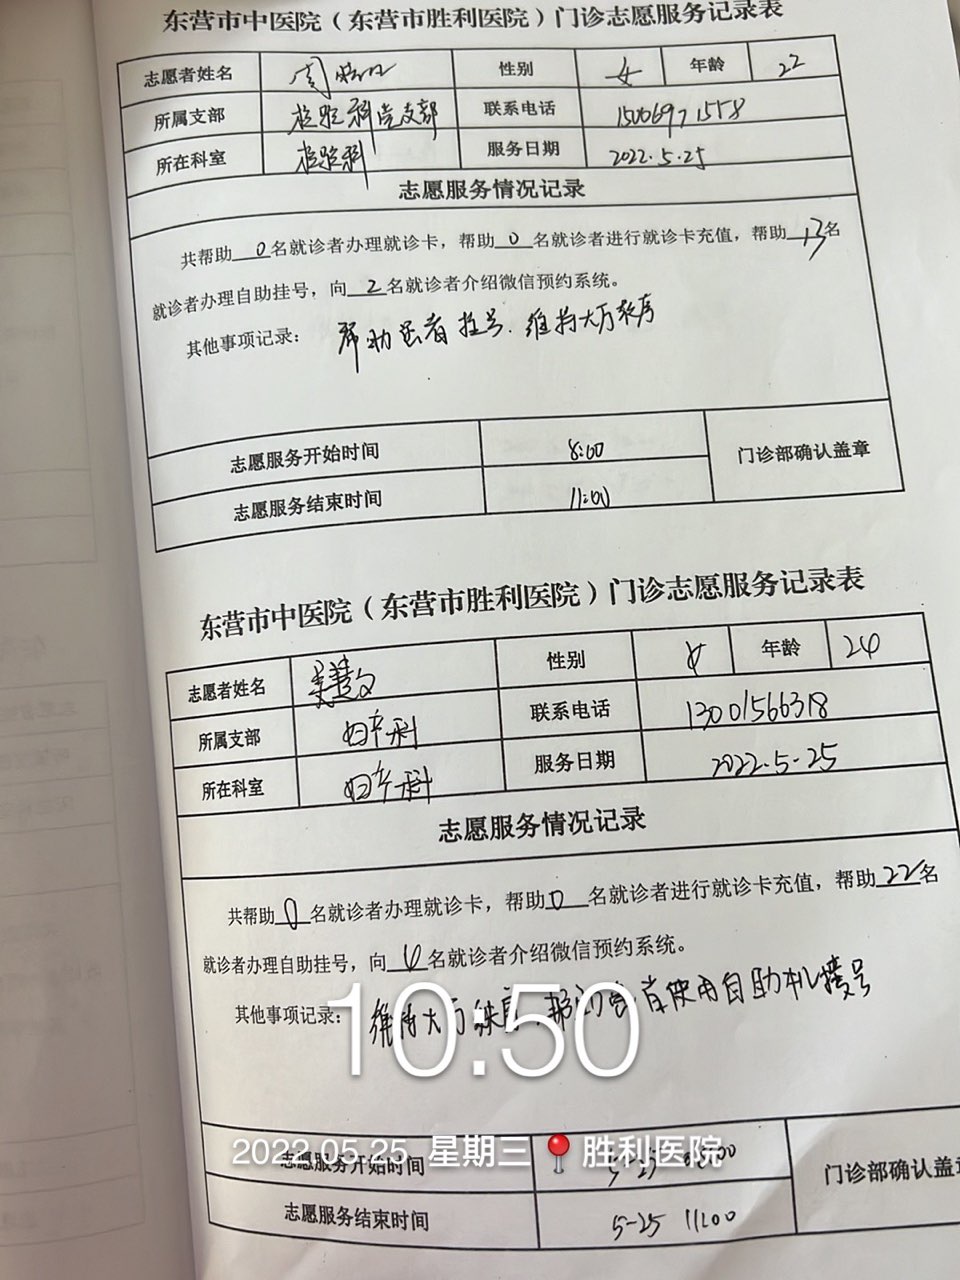 东营市中医院（东营市胜利医院）门诊志愿服务记录表
志愿者姓名 周 性别 女 年龄 22
所属支部 检验科党支部 联系电话 15069971558
所在科室 检验科 服务日期 2022.5.25
志愿服务情况记录
共帮助0名就诊者办理就诊卡，帮助0名就诊者进行就诊卡充值，帮助13名
就诊者办理自助挂号，向2名就诊者介绍微信预约系统。
其他事项记录： 帮助患者挂号、维持大厅秩序
志愿服务开始时间 8:00 门诊部确认盖章
志愿服务结束时间 11:00
东营市中医院（东营市胜利医院）门诊志愿服务记录表
志愿者姓名 吴慧文 性别 女 年龄 24
所属支部 妇产科 联系电话 13001566318
所在科室 妇产科 服务日期 2022.5-25
志愿服务情况记录
共帮助0名就诊者办理就诊卡，帮助0名就诊者进行就诊卡充值，帮助22名
就诊者办理自助挂号，向0名就诊者介绍微信预约系统。
其他事项记录： 维持大厅秩序，帮助患者使用自助机挂号
10:50
2022.05.25 星期三 胜利医院
志愿服务开始时间 5-25 门诊部确认盖章
志愿服务结束时间 5-25 11:00